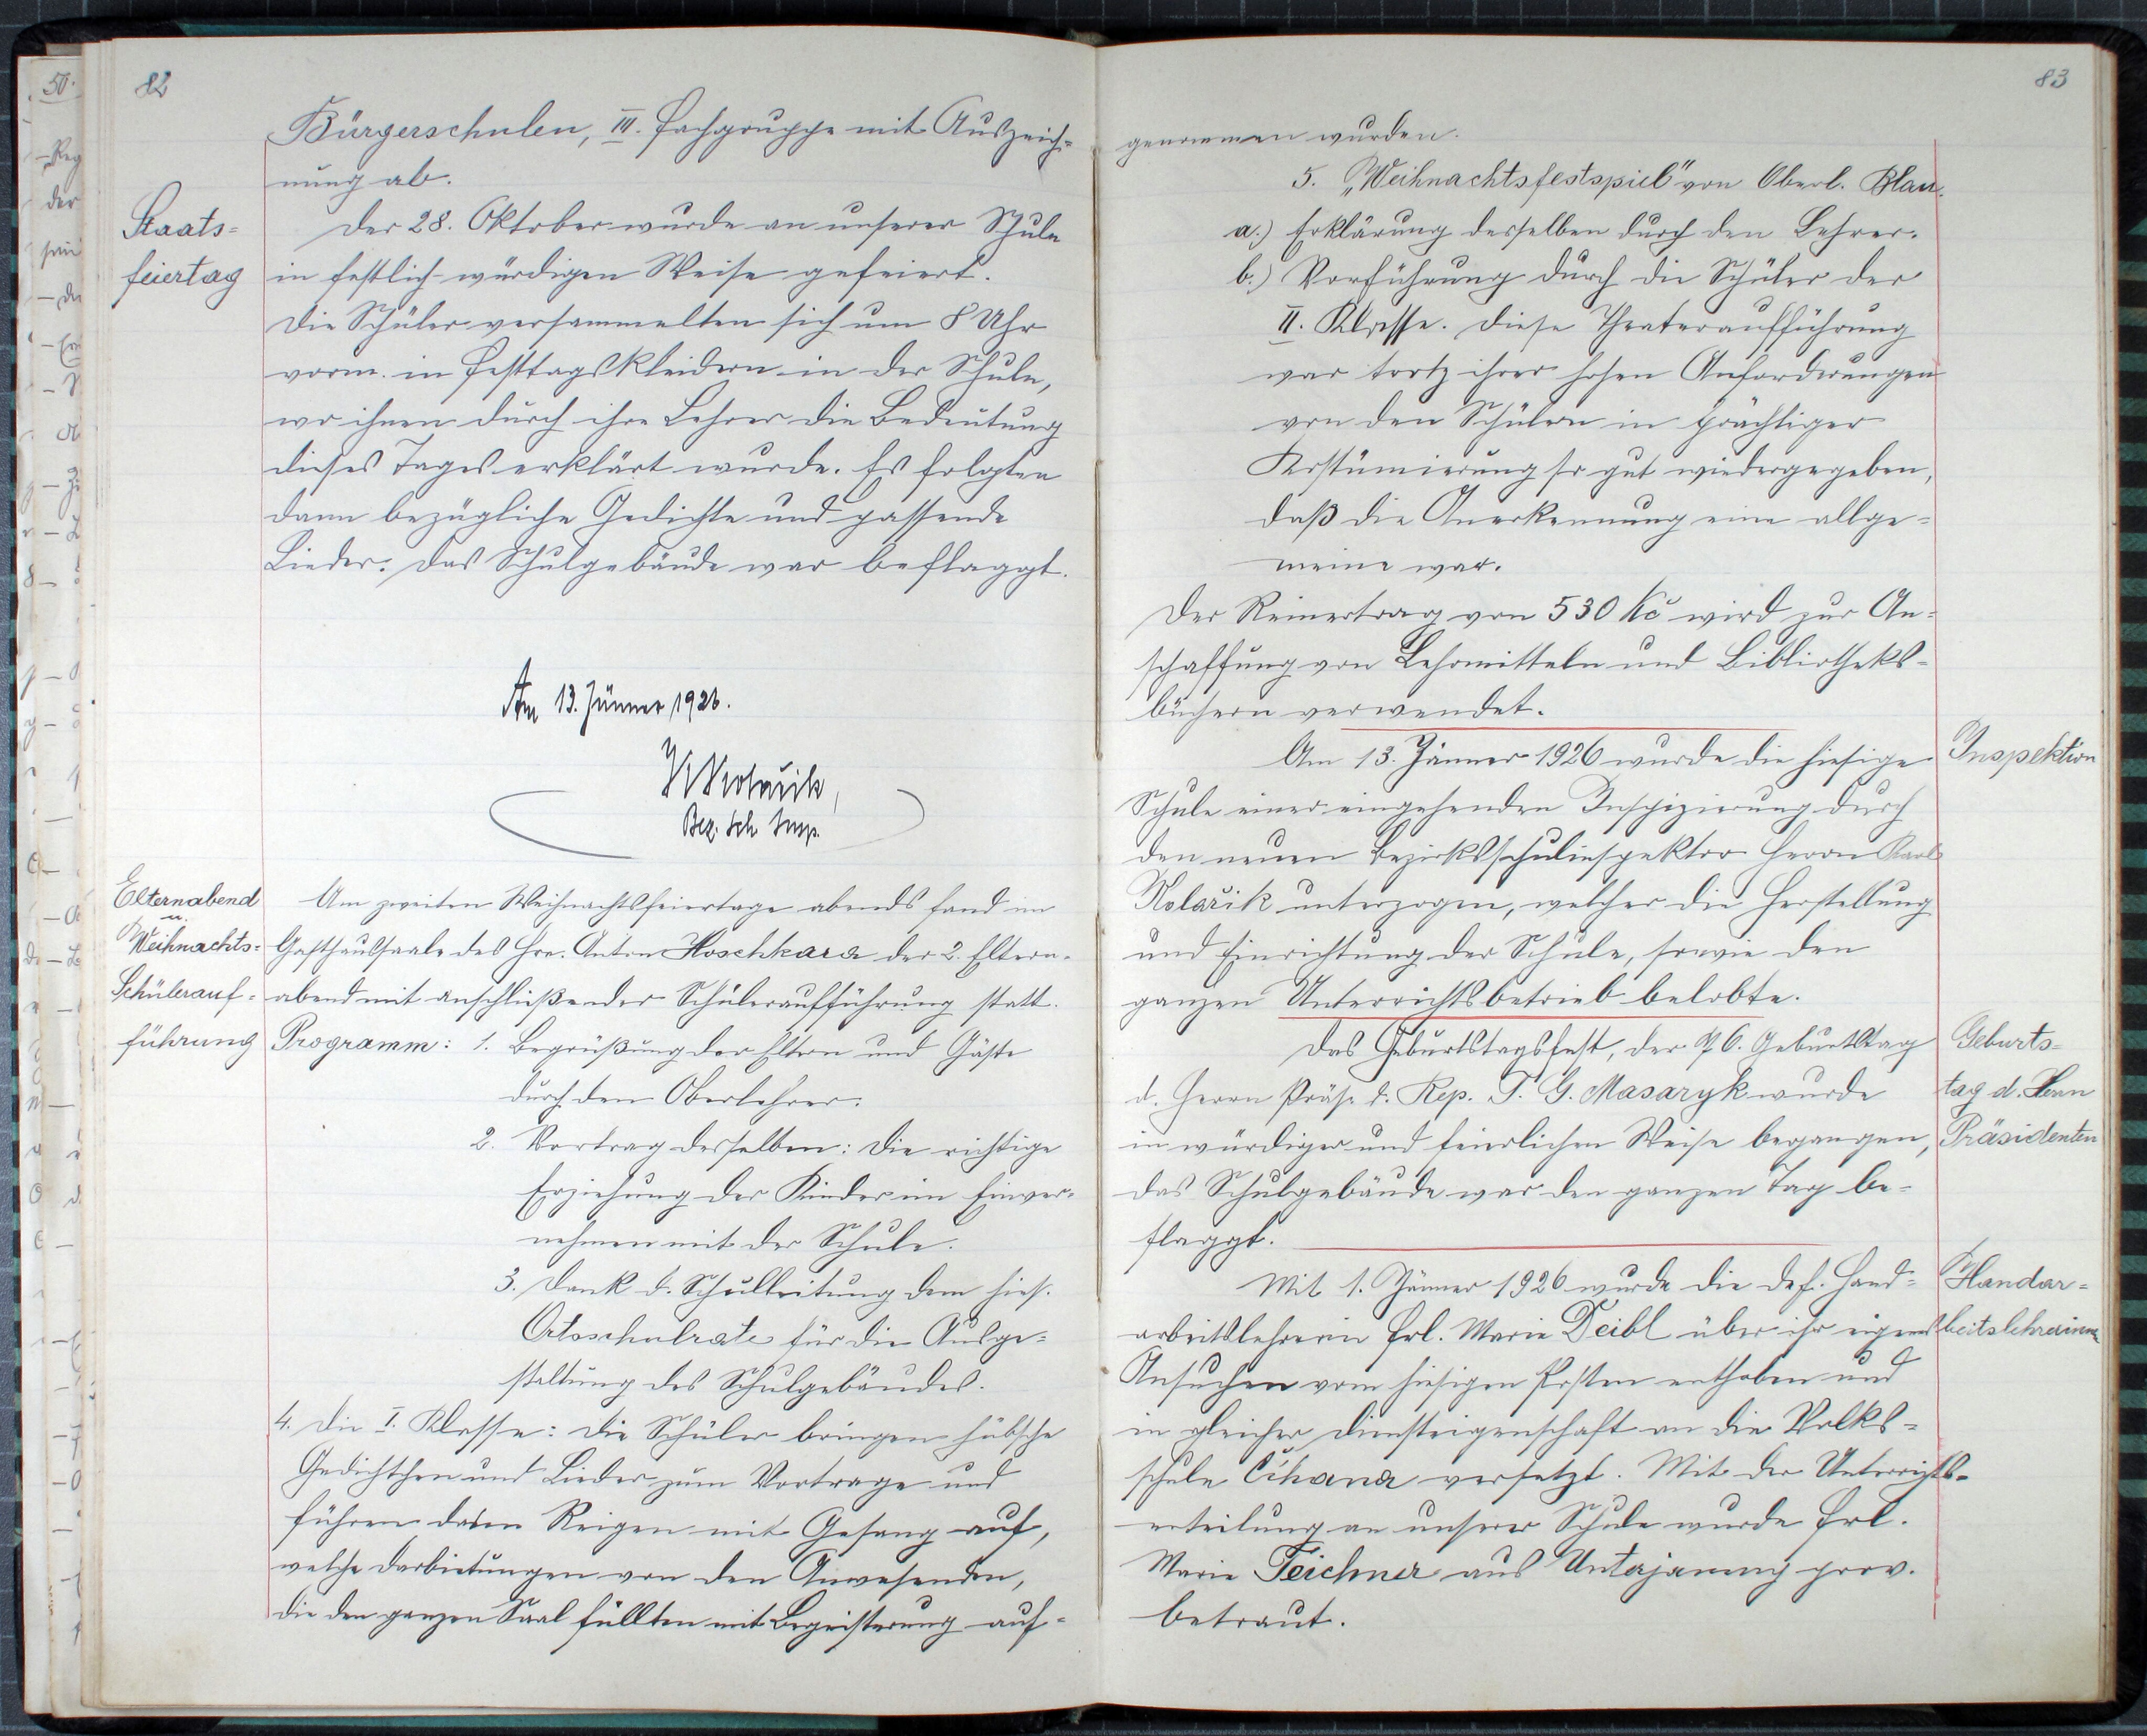 82
Bürgerschulen, III. Fachgruppe mit Auszeich-
nung ab.
Staats-
feiertag
Der 28. Oktober wurde an unserer Schule
in festlich-würdigen Weise gefeiert.
Die Schüler versammelten sich um 8 Uhr
vorm. in Festtagskleidern in der Schule,
wo ihnen durch ihre Lehrer die Bedeutung
dieses Tages erklärt wurde. Es folgten
dann bezügliche Gedichte und passende
Lieder. Das Schulgebäude war beflaggt.
Am 13. Jänner 1926.
Bez. Sch. Insp.
Elternabend
u.
Weihnachts-
Schülerauf-
führung
Am zweiten Weihnachtsfeiertage abends fand im
Gasthaussaale des Hrn. Anton Hoschkara der 2. Eltern-
abend mit anschließender Schüleraufführung statt.
Programm: 1. Begrüßung der Eltern und Gäste
durch den Oberlehrer.
2. Vortrag desselben: Die richtige
Erziehung der Kinder im Einver-
nehmen mit der Schule.
3. Dank d. Schulleitung dem hies.
Ortsschulrate für die Ausge-
staltung des Schulgebäudes.
4. Die I. Klasse: Die Schüler bringen hübsche
Gedichtchen und Lieder zum Vortrage und
führen Reigen mit Gesang auf,
welche Darbietungen von den Anwesenden,
die den ganzen Saal füllten mit Begeisterung auf-
83
genommen wurden.
5. „Weihnachtsfestspiel" von Oberl. Blau.
a.) Erklärung desselben durch den Lehrer.
b.) Vorführung durch die Schüler der
II. Klasse. Diese Theateraufführung
war trotz ihrer hohen Anforderungen
von den Schülern in prächtiger
Kostümierung so gut wiedergegeben,
daß die Anerkennung eine allge-
meine war.
Der Reinertrag von 530 Kč wird zur An-
schaffung von Lehrmitteln und Bibliotheks-
büchern verwendet.
Inspektion
Am 13. Jänner 1926 wurde die hiesige
Schule einer eingehenden Inspizierung durch
den neuen Bezirksschulinspektor Herrn Karl
Kolařik unterzogen, welcher die Herstellung
und Einrichtung der Schule, sowie den
ganzen Unterrichtsbetrieb belobte.
Geburts-
tag d. Herrn
Präsidenten
Das Geburtstagsfest, der 76. Geburtstag
d. Herrn Präs. d. Rep. T. G. Masaryk wurde
in würdiger und feierlichen Weise begangen,
das Schulgebäude war den ganzen Tag be-
flaggt.
Handar-
beitslehrerinnen
Mit 1. Jänner 1926 wurde die def. Hand-
arbeitslehrerin Frl. Marie Deibl über ihr eigenes
Ansuchen vom hiesigen Posten enthoben und
in gleicher Diensteigenschaft an die Volks-
schule Čihana versetzt. Mit der Unterrichts-
erteilung an unserer Schule wurde Frl.
Marie Teichner aus Unterjamny prov.
betraut.